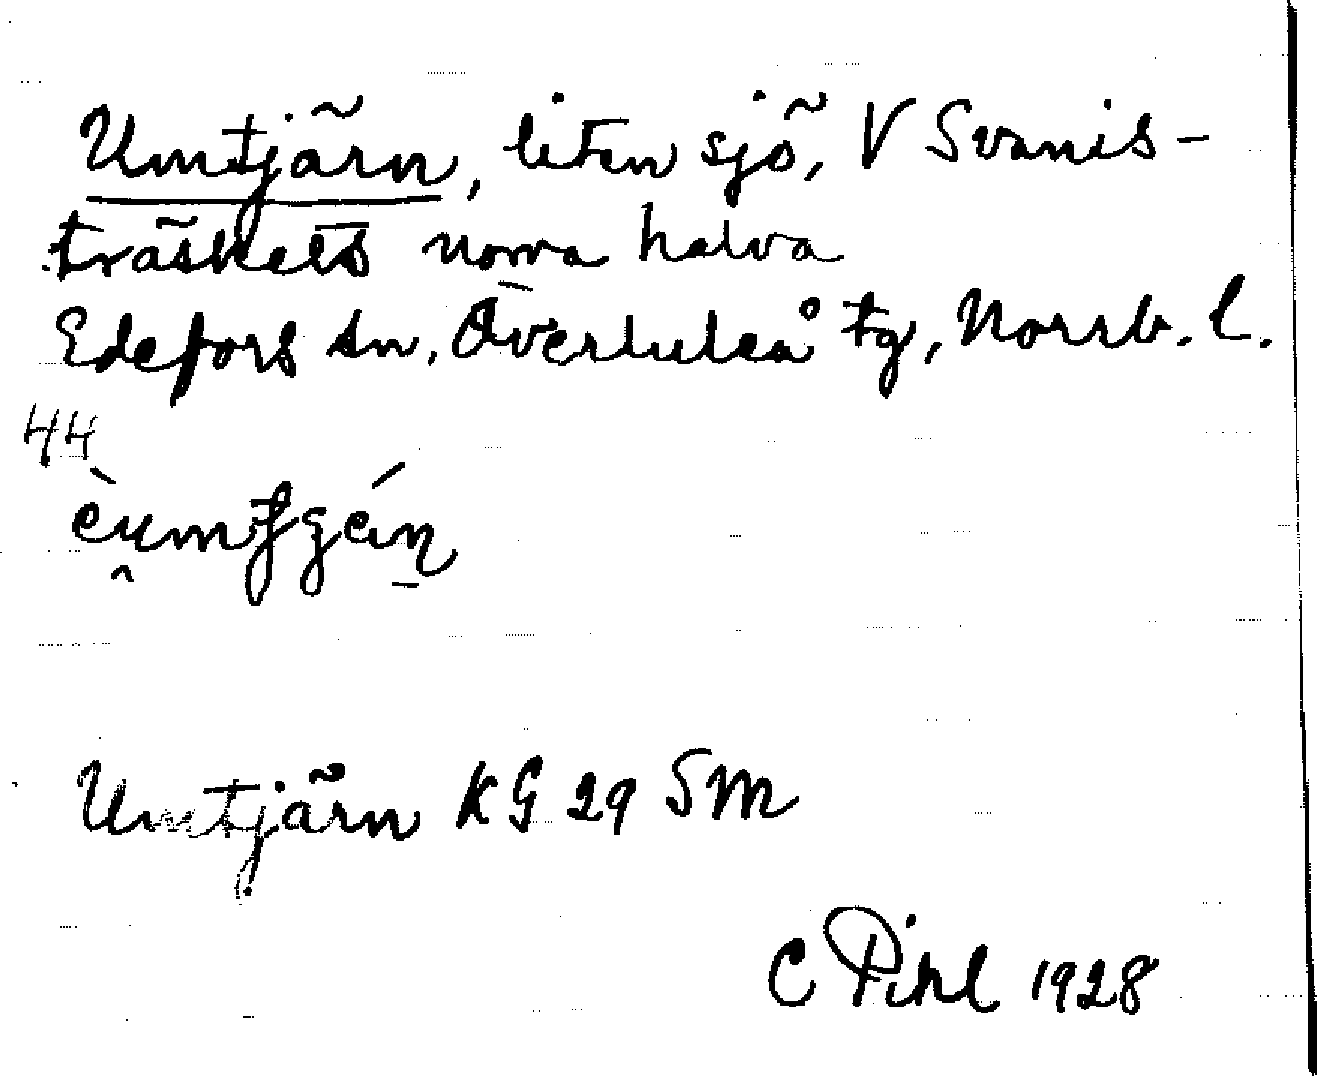 Umtjärn, liten sjö, V Svanis-
träskets norra halva
Edefors sn, Överluleå tg, Norrb. l.
44
Umtjärn KG 29 SM
C Pihl 1928